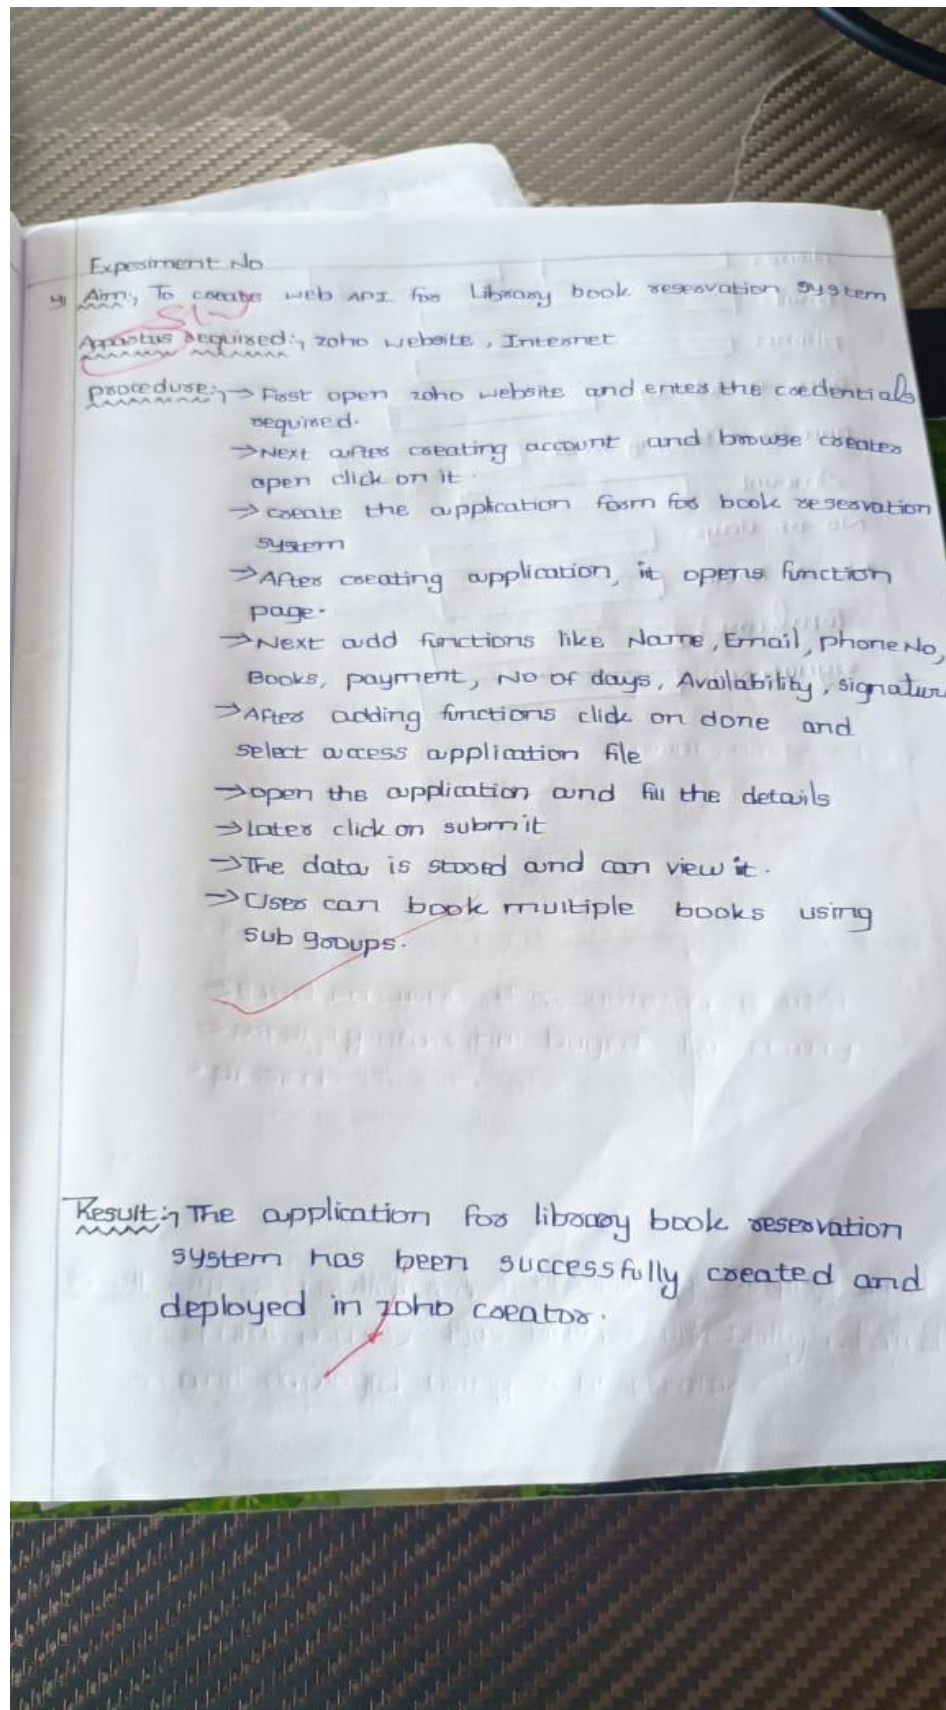 Experiment No
4) Aim:, To create web API for Library book reservation system
Appratus required:, zoho website, Internet
procedure:, → First open zoho website and enter the credentials
required.
→ Next after creating account and browse creater
open click on it.
→ create the application form for book reservation
system
→ After creating application, it opens function
page.
→ Next add functions like Name, Email, phone No,
Books, payment, No of days, Availability, signature
→ After adding functions click on done and
select access application file
→ open the application and fill the details
→ Later click on submit
→ The data is stored and can view it.
→ User can book multiple books using
sub groups.
Result:, The application for library book reservation
system has been successfully created and
deployed in zoho creator.